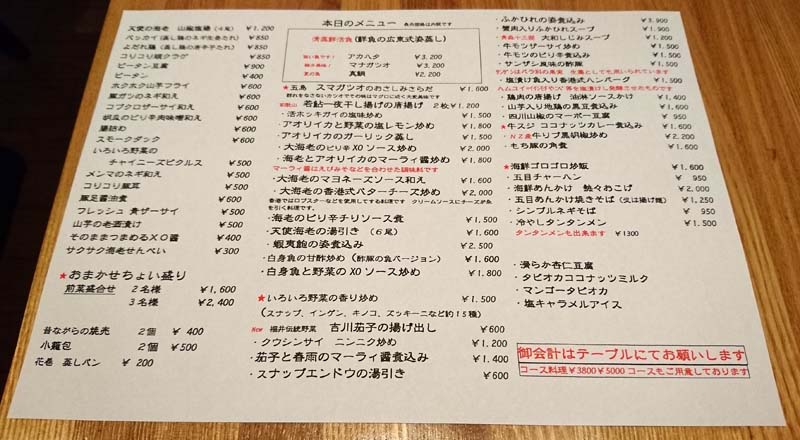 本日のメニュー 表内価格は内税です
天使の海老 山椒塩揚 (4尾) ¥1.200
ペッカイ (蒸し鶏のネギ生姜たれ) ¥850
よだれ鶏 (蒸し鶏の唐辛子たれ) ¥850
コリコリ頭クラゲ ¥850
ピータン豆腐 ¥900
ピータン ¥400
ホクホク山芋フライ ¥500
葉ガツのネギ和え ¥500
コブクロザーサイ和え ¥500
胡瓜のピリ辛肉味噌和え ¥600
腸詰め ¥500
スモークダック ¥600
いろいろ野菜の
チャイニーズピクルス ¥500
メンマのネギ和え ¥500
コリコリ豚耳 ¥500
豚足醤油煮 ¥600
フレッシュ 青ザーサイ ¥500
山芋の老酒漬け ¥500
そのままつまめるXO醤 ¥400
サクサク海老せんべい ¥300
★おまかせちょい盛り
前菜盛合せ 2名様 ¥1,600
3名様 ¥2,400
昔ながらの焼売 2個 ¥400
小籠包 2個 ¥500
花巻 蒸しパン ¥200
清蒸鮮活魚 (鮮魚の広東式姿蒸し)
アカハタ ¥3,200
マナガツオ ¥3,200
夏の魚 真鯛 ¥2,200
★五島 スマガツオのおさしみさらだ ¥1.600
群れをなさないカツオでその味はマグロに近く大変美味です
和歌山 若鮎一夜干し揚げの唐揚げ 2枚¥1.200
・活ホッキガイの塩味炒め ¥1.500
・アオリイカと野菜の塩レモン炒め ¥1.800
・アオリイカのガーリック蒸し ¥1.500
・大海老のピリ辛XOソース炒め ¥2.000
・海老とアオリイカのマーラィ醤炒め ¥1.800
マーラィ醤はえびみそなどを合わせた調味料です
・大海老のマヨネーズソース和え ¥1.600
・大海老の香港式バターチーズ炒め ¥2,000
香港ではロブスターなどを使用してする料理です クリームソースにチーズが糸
を引く料理です。
・海老のピリ辛チリソース煮 ¥1,500
・天使海老の湯引き (6尾) ¥1.500
・蝦夷鮑の姿煮込み ¥2.500
・白身魚の甘酢炒め (酢豚の魚バージョン) ¥1.600
・白身魚と野菜のXOソース炒め ¥1.800
★いろいろ野菜の香り炒め ¥1.500
(スナップ、インゲン、キノコ、ズッキーニなど約15種)
New 福井伝統野菜 吉川茄子の揚げ出し ¥600
・クウシンサイ ニンニク炒め ¥1,200
・茄子と春雨のマーラィ醤煮込み ¥1.400
・スナップエンドウの湯引き ¥600
ふかひれの姿煮込み ¥3,900
蟹肉入りふかひれスープ ¥1.900
★青森十三湖 大和しじみスープ
・牛モツザーサイ炒め ¥1,500
・牛モツのピリ辛煮込み ¥1,500
・サンザシ風味の酢豚 ¥1,500
サンザシはバラ科の果実 生薬としても用いられています
・塩漬け魚入り香港式ハンバーグ ¥1,500
・鶏肉の唐揚げ 油淋ソースかけ ¥1,400
・山芋入り地鶏の黒豆煮込み ¥1,600
・四川山椒のマーボー豆腐 ¥950
★牛スジ ココナッツカレー煮込み ¥1,600
・NZ産 牛リブ黒胡椒炒め ¥2,000
・もち豚の角煮 ¥1,600
★海鮮ゴロゴロ炒飯 ¥1,600
・五目チャーハン ¥950
・海鮮あんかけ 鮑々おこげ ¥2,000
・五目あんかけ焼きそば (又は揚げ麺) ¥1,250
・シンプルネギそば ¥950
・冷やしタンタンメン ¥1,500
タンタンメンも出来ます ¥1300
・滑らか杏仁豆腐
・タピオカココナッツミルク
・マンゴータピオカ
・塩キャラメルアイス
御会計はテーブルにてお願いします
コース料理¥3800¥5000コースもご用意しております